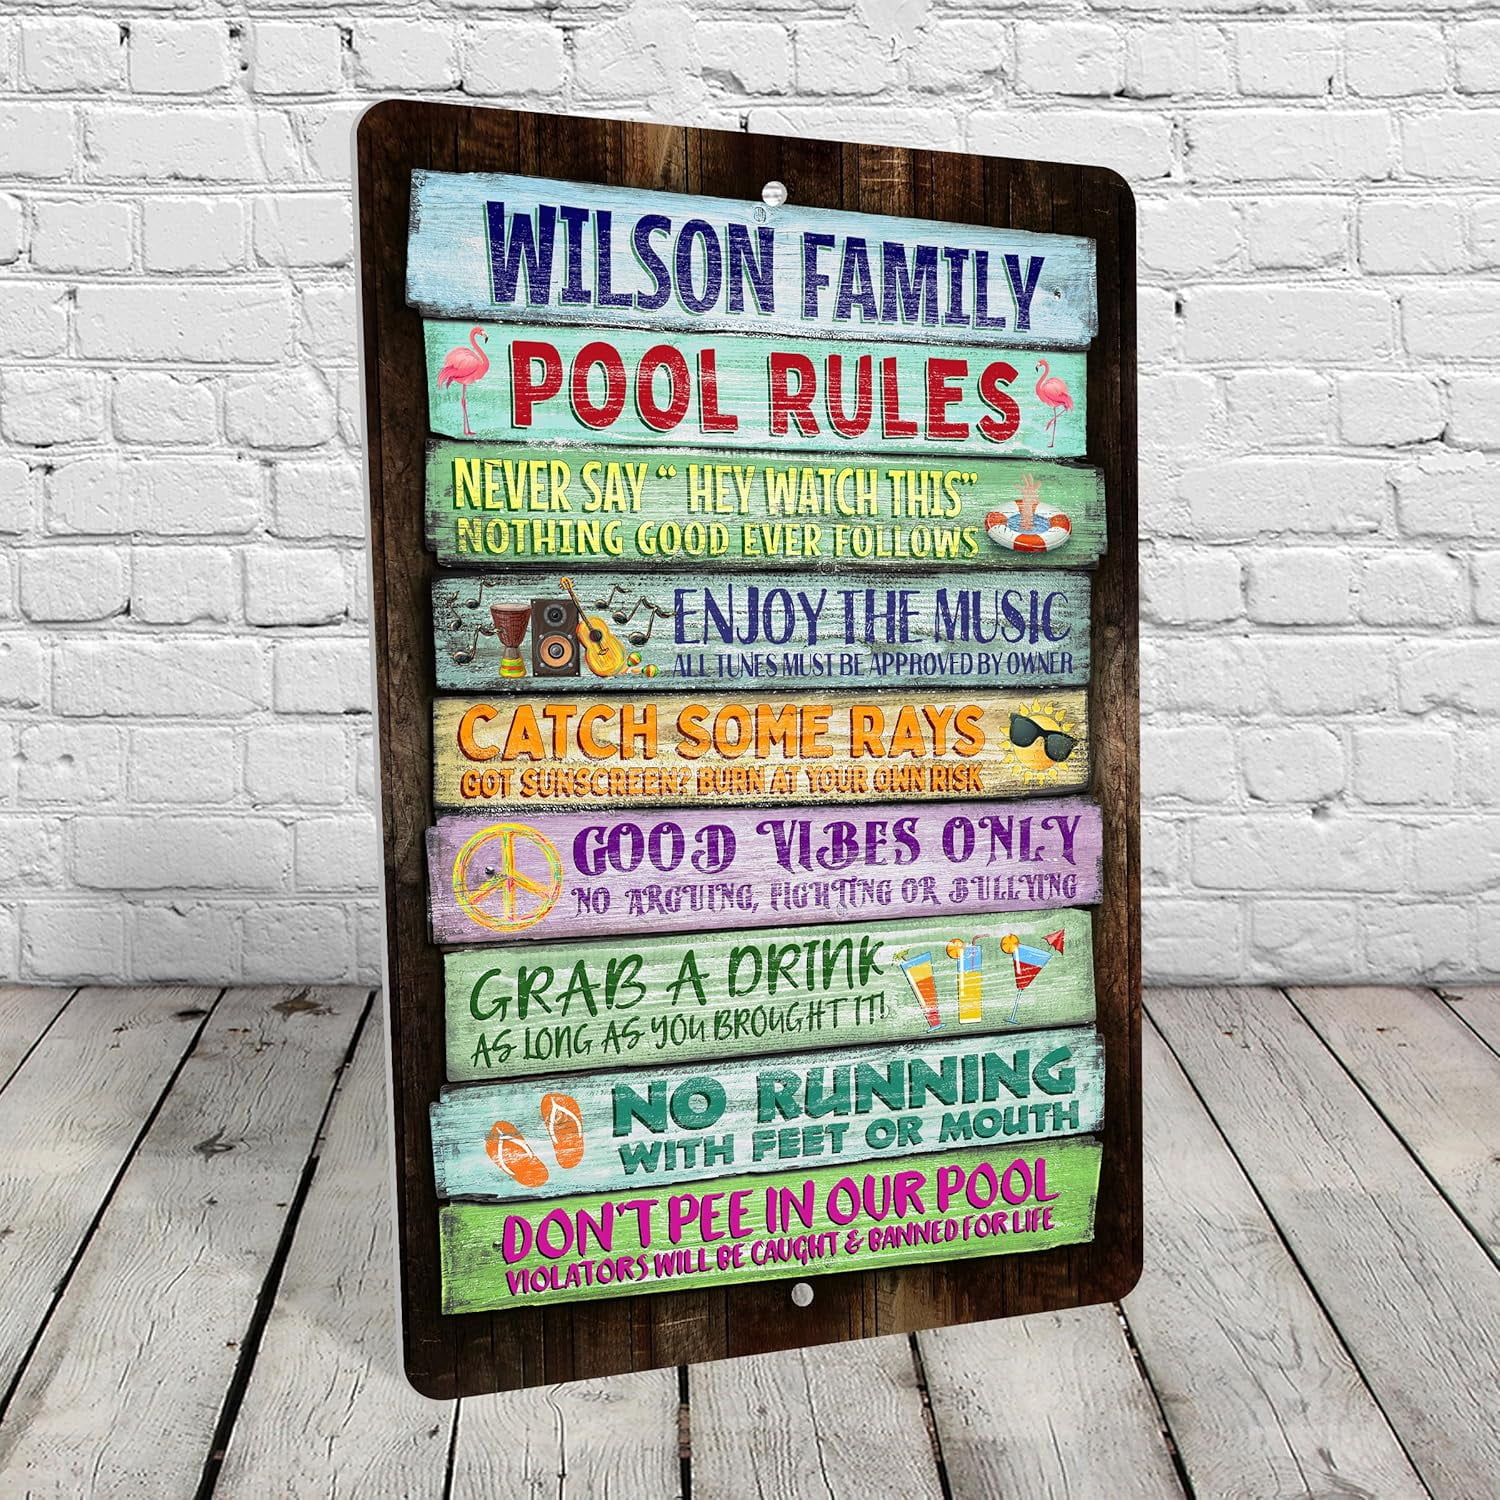 WILSON FAMILY
POOL RULES
NEVER SAY “ HEY WATCH THIS”
NOTHING GOOD EVER FOLLOWS
ENJOY THE MUSIC
ALL TUNES MUST BE APPROVED BY OWNER
CATCH SOME RAYS
GOT SUNSCREEN? BURN AT YOUR OWN RISK
GOOD VIBES ONLY
NO ARGUING, FIGHTING OR BULLYING
GRAB A DRINK
AS LONG AS YOU BROUGHT IT!
NO RUNNING
WITH FEET OR MOUTH
DON'T PEE IN OUR POOL
VIOLATORS WILL BE CAUGHT & BANNED FOR LIFE